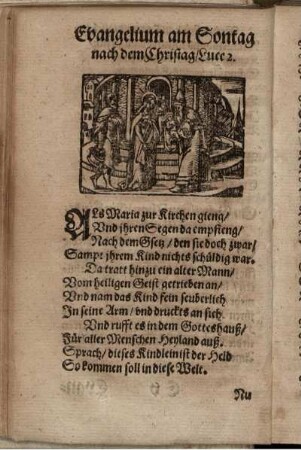 Evangelium am Sontag
nach dem Christag/ Luce 2.
ALs Maria zur Kirchen gieng/
Vnd jhren Segen da empfieng/
Nach dem Gsetz/ den sie doch zwar/
Sampt jhrem Kind nichts schüldig war.
Da tratt hinzu ein alter Mann/
Vom heiligen Geist getrieben an/
Vnd nam das Kind fein seuberlich
In seine Arm/ vnd druckts an sich.
Vnd rufft es in dem Gotteshauß/
Für aller Menschen Heyland auß.
Sprach/ dieses Kindlein ist der Held
So kommen soll in diese Welt.
Nu